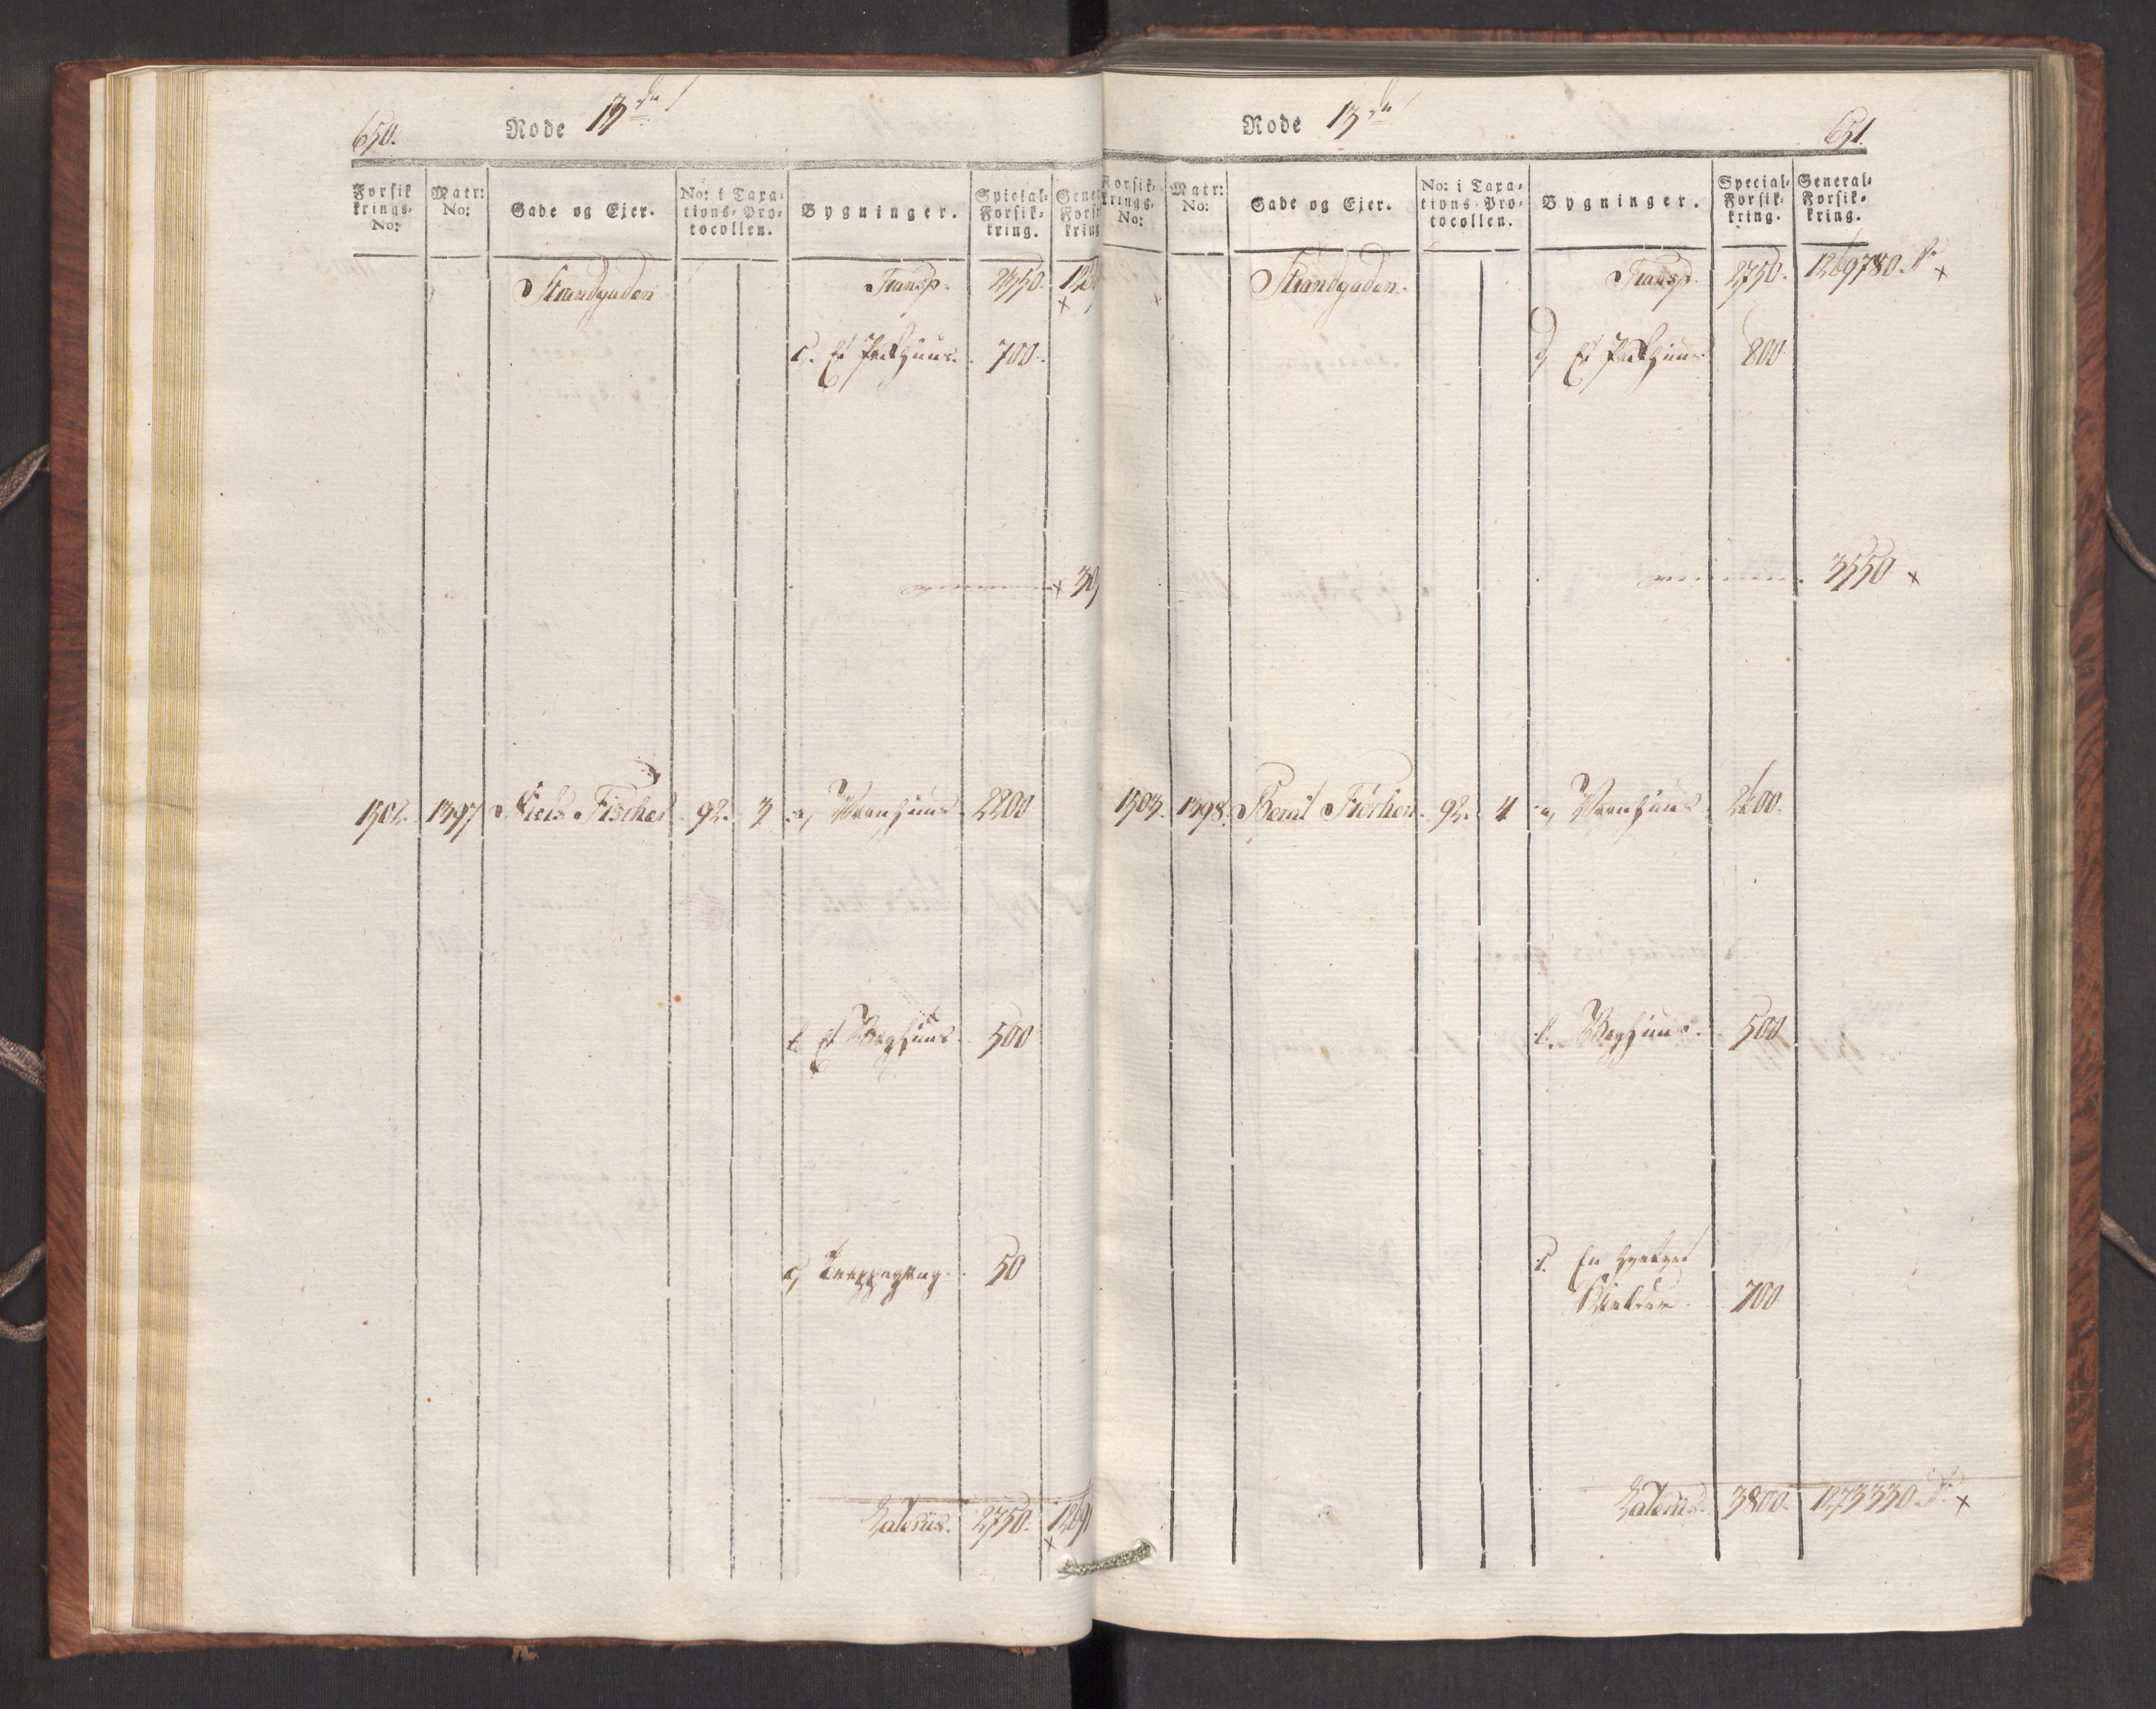 650.
Rode 13de
Forsik krings- No:
Matr: No:
Gade og Ejer.
No: i Taxa- tions- Pro- tocollen.
Bygninger.
Special- Forsik- kring.
Strandgaden
Transp. 2350.
c. Et Pakhuus. 700.
1502. 1397 Niels Fischer 92. 3 a, Vaanhuus 2200
b. Et Baghuus. 500
c, 50
Lateris. 2750.
Rode 13de
651.
Forsik- krings- No:
Matr: No:
Gade og Ejer.
No: i Taxa- tions- Pro- tocollen.
Bygninger.
Special- Forsik- kring.
General- Forsik- kring.
Strandgaden.
Transp. 2750. 1269780.
d, Et Pakhuus 800
3550 x
1503. 1398. Berut 92. 4 a, Vaanhuus
b. Baghuus. 500
c. En hvælvet
Kielder 700
Lateris. 3800. 1273330.